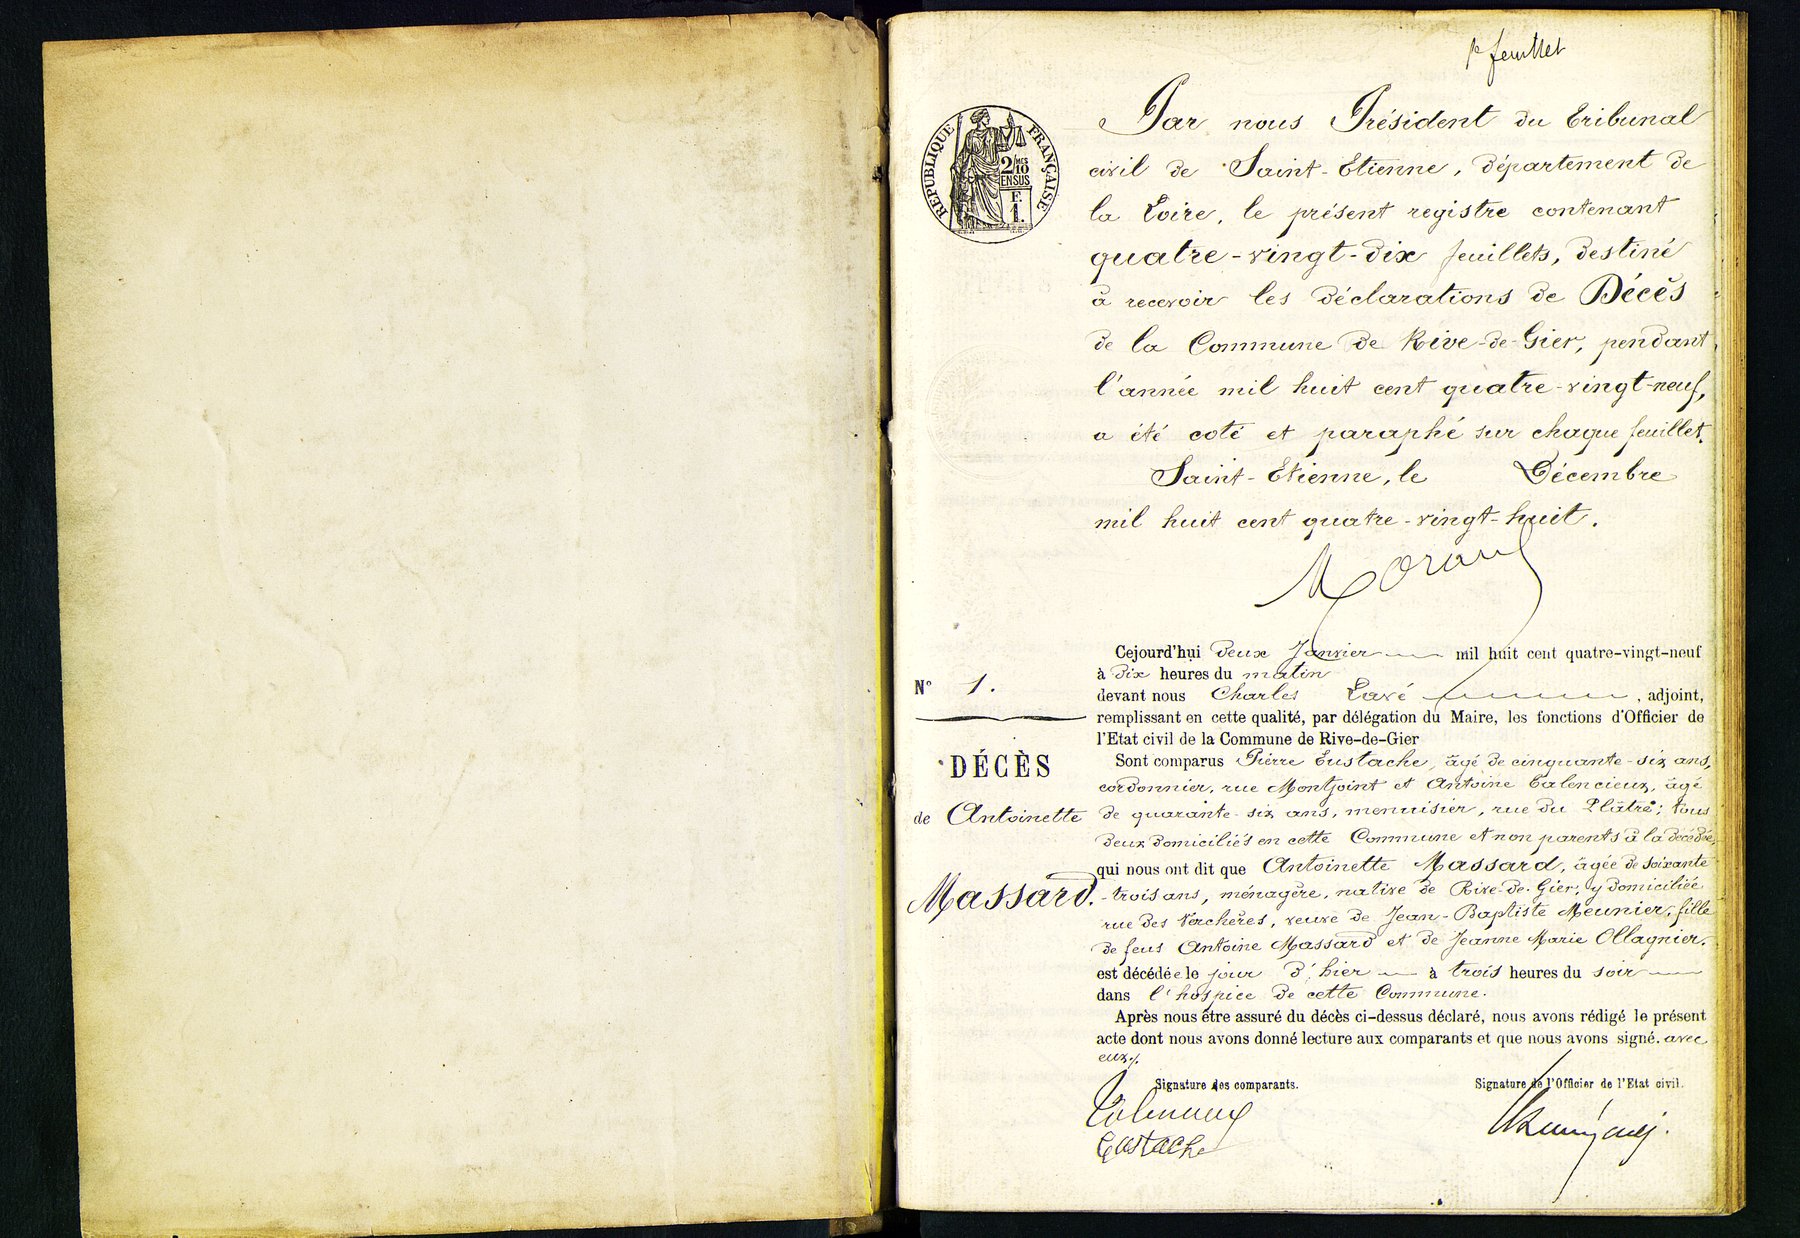 1e feuillet
RÉPUBLIQUE FRANÇAISE
2/MES
10
EN SUS
F.
1.
Par nous Président du Tribunal
civil de Saint-Etienne, département de
la Loire, le présent registre contenant
quatre-vingt-dix feuillets, destiné
à recevoir les déclarations de Décès
de la Commune de Rive-de-Gier, pendant
l'année mil huit cent quatre-vingt-neuf,
a été coté et paraphé sur chaque feuillet.
Saint-Etienne, le Décembre
mil huit cent quatre-vingt-huit.
Cejourd'hui deux Janvier mil huit cent quatre-vingt-neuf
à dix heures du matin
N° 1.
devant nous Charles , adjoint,
remplissant en cette qualité, par délégation du Maire, les fonctions d'Officier de
l'Etat civil de la Commune de Rive-de-Gier
DÉCÈS
de Antoinette
Massard.
Sont comparus Pierre Eustache, âgé de cinquante-six ans,
cordonnier, rue Montjoint et Antoine Talencieux, âgé
de quarante-six ans, menuisier, rue du Plâtre; tous
deux domiciliés en cette Commune et non parents à la décédée,
qui nous ont dit que Antoinette Massard, âgée de soixante
-trois ans, ménagère, native de Rive-de-Gier, y domiciliée
rue des Verchères, veuve de Jean-Baptiste Meunier, fille
de feus Antoine Massard et de Jeanne Marie Ollagnier.
est décédée le jour d'hier à trois heures du soir
dans l'hospice de cette Commune.
Après nous être assuré du décès ci-dessus déclaré, nous avons rédigé le présent
acte dont nous avons donné lecture aux comparants et que nous avons signé. avec
eux.
Signature des comparants.
Signature de l'Officier de l'Etat civil.
Eustache